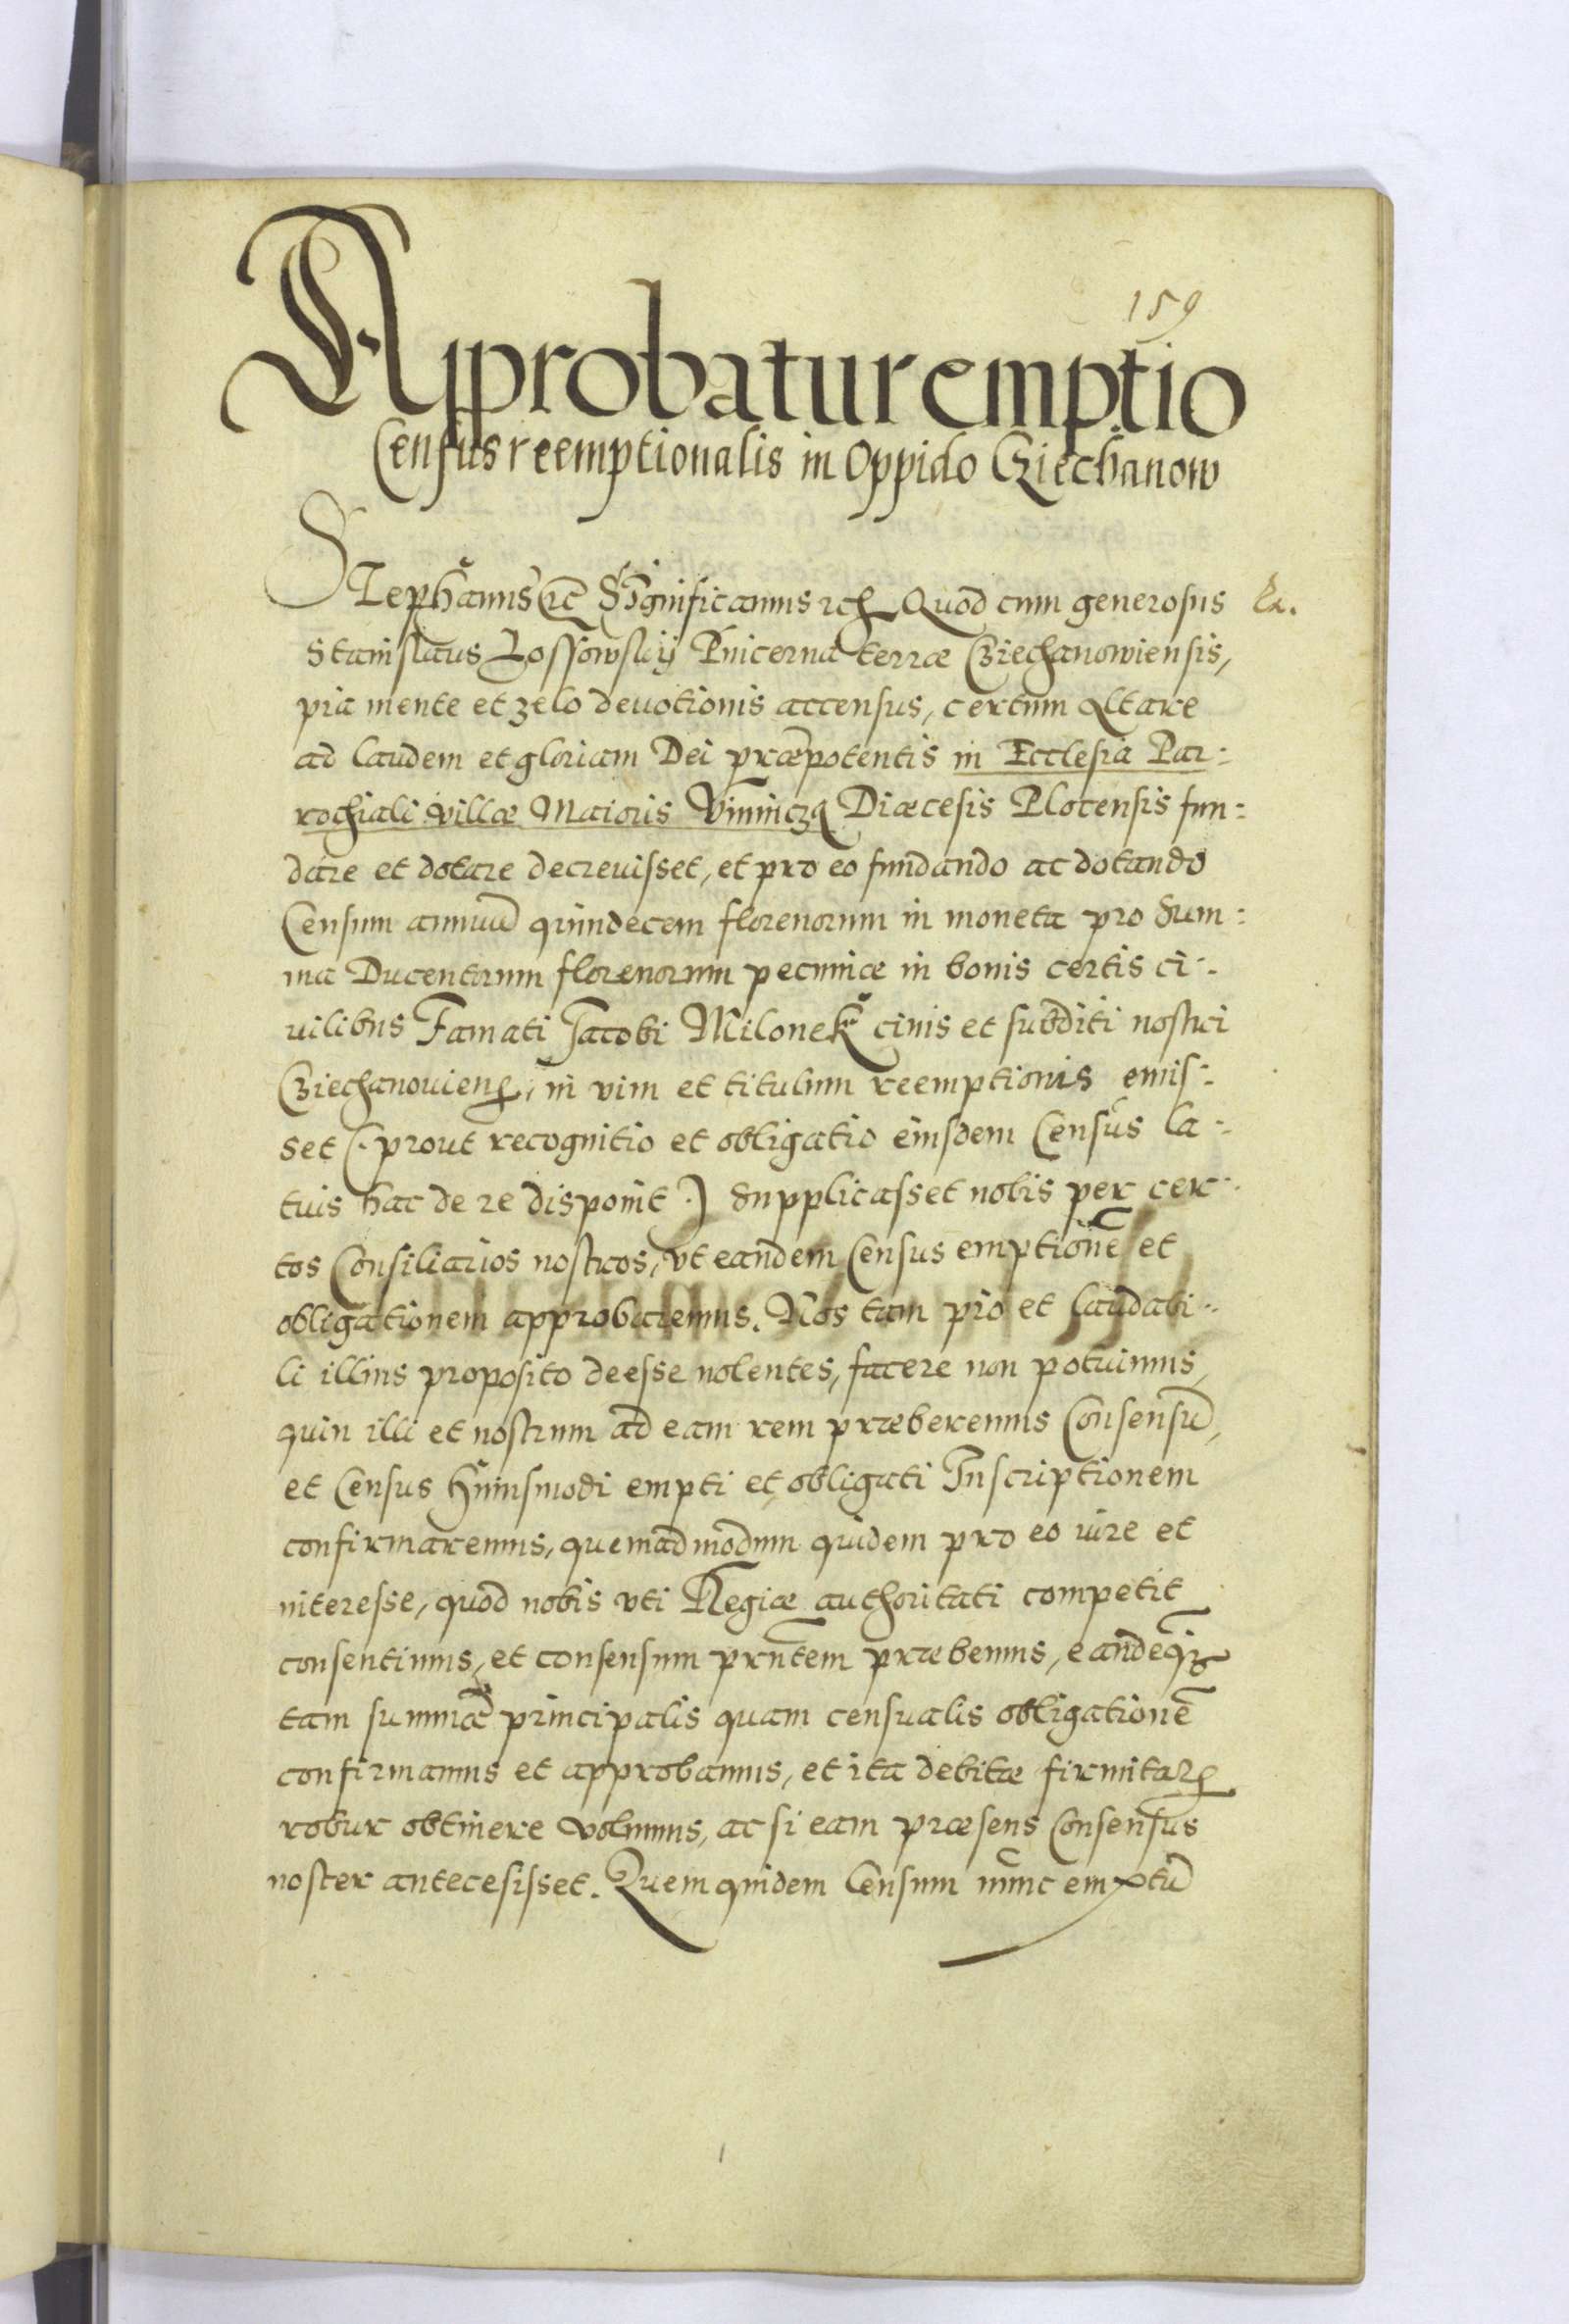 159
Approbatur emptio
Census reemptionalis in Oppido Cziechanow
Stephanus etc Significamus etc Quod cum generosus Ex.
Stanislaus Lossowskij Pincerna terræ Cziechanowiensis,
pia mente et zelo deuotionis accensus, certum Altare
ad laudem et gloriam Dei præpotentis in Ecclesia Par:
rochiali villæ Maioris Diæcesis Plocensis fun:
dare et dotare decreuisset, et pro eo fundando ac dotando
Censum annuū quindecem florenorum in moneta pro Sum:
ma Ducentorum florenorum pecuniæ in bonis certis ci:
uilibus Famati Jacobi Milonek ciuis et subditi nostri
Cziechanouien, in vim et titulum reemptionis emis:
set (: prout recognitio et obligatio eiusdem Census la:
tius hac de re disponit :) Supplicasset nobis per cer:
tos Consiliarios nostros, vt eandem Census emptionē et
obligationem approbaremus. Nos tam pio et laudabi:
li illius proposito deesse nolentes, facere non potuimus,
quin illi et nostrum ad eam rem præberemus Consensū,
et Census huiusmodi empti et obligati Inscriptionem
confirmaremus, quemadmodum quidem pro eo iure et
interesse, quod nobis vti Regiæ authoritati competit
consentimus, et consensum prntem præbemus, eandēq3
tam summæ principalis quam censualis obligationē
confirmamus et approbamus, et ita debitæ firmitatis
robur obtinere volumus, ac si eam præsens Consensus
noster antecesisset. Quem quidem Censum nunc emptū